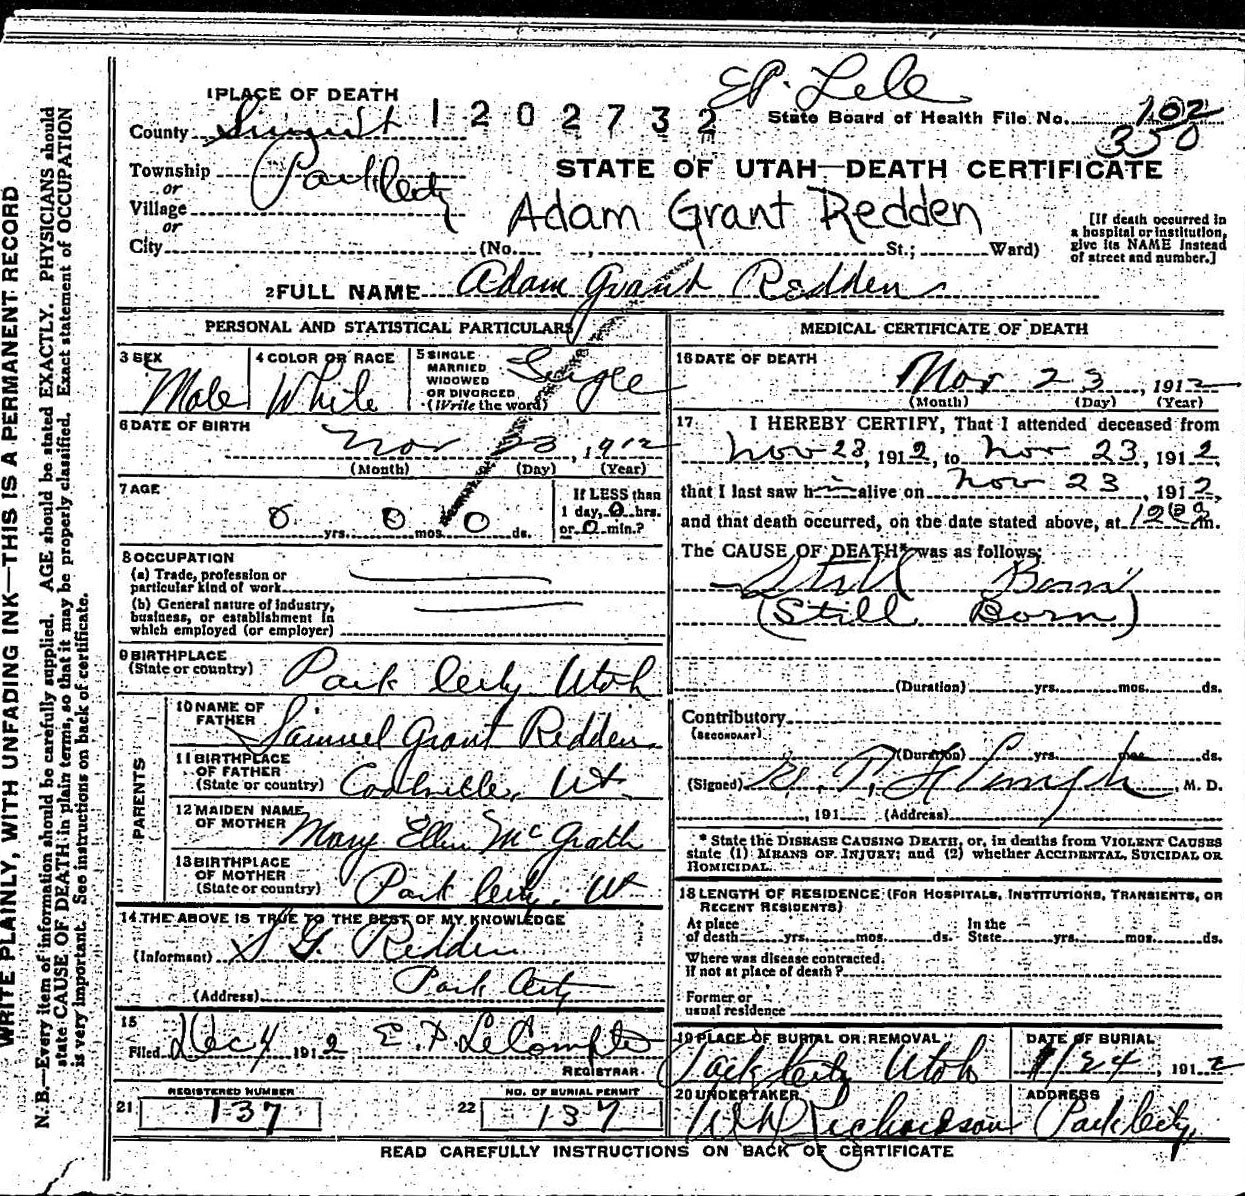 E.P. LeCo
1 PLACE OF DEATH
1202732
State Board of Health File No. 102
350
County Summit
Township Park City
or
Village
or
STATE OF UTAH—DEATH CERTIFICATE
Adam Grant Redden
[If death occurred in a hospital or institution, give its NAME instead of street and number.]
City (No. , St.; Ward)
2 FULL NAME Adam Grant Redden
PERSONAL AND STATISTICAL PARTICULARS
3 SEX Male
4 COLOR OR RACE White
5 SINGLE MARRIED WIDOWED OR DIVORCED (Write the word) Single
6 DATE OF BIRTH
Nov 23, 1912
(Month) (Day) (Year)
7 AGE
0 yrs. 0 mos. 0 ds.
If LESS than 1 day, 0 hrs. or 0 min.?
8 OCCUPATION
(a) Trade, profession or particular kind of work
(b) General nature of industry, business, or establishment in which employed (or employer)
9 BIRTHPLACE (State or country) Park City Utah
PARENTS
10 NAME OF FATHER Samuel Grant Redden
11 BIRTHPLACE OF FATHER (State or country) Coalville, Ut.
12 MAIDEN NAME OF MOTHER Mary Ellen McGrath
13 BIRTHPLACE OF MOTHER (State or country) Park City, Ut
14 THE ABOVE IS TRUE TO THE BEST OF MY KNOWLEDGE
(Informant) S G. Redden
(Address) Park City
15
Filed Dec 4 1912 E. P. LeCompte
REGISTRAR
21 REGISTERED NUMBER 137
22 NO. OF BURIAL PERMIT 137
MEDICAL CERTIFICATE OF DEATH
16 DATE OF DEATH
Nov 23, 1912
(Month) (Day) (Year)
17. I HEREBY CERTIFY, That I attended deceased from
Nov 23, 1912, to Nov 23, 1912,
that I last saw h alive on Nov 23, 1912,
and that death occurred, on the date stated above, at m.
The CAUSE OF DEATH* was as follows:
Still Born
(Still Born)
(Duration) yrs. mos. ds.
Contributory
(SECONDARY)
(Duration) yrs. mos. ds.
(Signed) M. D.
, 191 (Address)
* State the DISEASE CAUSING DEATH, or, in deaths from VIOLENT CAUSES state (1) MEANS OF INJURY; and (2) whether ACCIDENTAL, SUICIDAL OR HOMICIDAL.
18 LENGTH OF RESIDENCE (FOR HOSPITALS, INSTITUTIONS, TRANSIENTS, OR RECENT RESIDENTS)
At place of death yrs. mos. ds. In the State yrs. mos. ds.
Where was disease contracted, if not at place of death?
Former or usual residence
19 PLACE OF BURIAL OR REMOVAL Park City Utah
DATE OF BURIAL 11/24, 1912
20 UNDERTAKER W H Richardson
ADDRESS Park City
READ CAREFULLY INSTRUCTIONS ON BACK OF CERTIFICATE
WRITE PLAINLY, WITH UNFADING INK—THIS IS A PERMANENT RECORD
N. B.—Every item of information should be carefully supplied. AGE should be stated EXACTLY. PHYSICIANS should
state CAUSE OF DEATH in plain terms, so that it may be properly classified. Exact statement of OCCUPATION
is very important. See instructions on back of certificate.